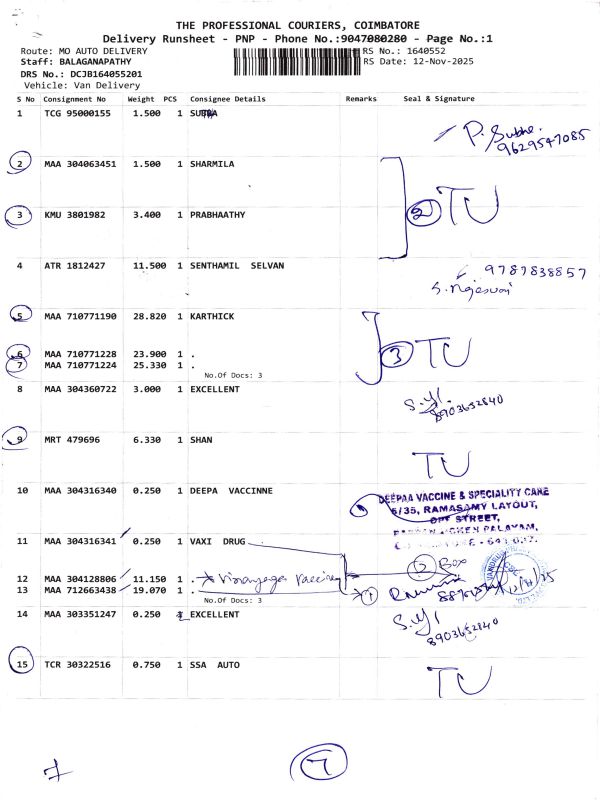 THE PROFESSIONAL COURIERS, COIMBATORE
Delivery Runsheet - PNP - Phone No.:9047080280 - Page No.:1
Route: MO AUTO DELIVERY RS No.: 1640552
Staff: BALAGANAPATHY RS Date: 12-Nov-2025
DRS No.: DCJB164055201
Vehicle: Van Delivery
S No Consignment No Weight PCS Consignee Details Remarks Seal & Signature
1 TCG 95000155 1.500 1
P. Subhe.
9629547085
2 MAA 304063451 1.500 1 SHARMILA
2 TU
3 KMU 3801982 3.400 1 PRABHAATHY
4 ATR 1812427 11.500 1 SENTHAMIL SELVAN
9787838857
5 MAA 710771190 28.820 1 KARTHICK
3 TU
6 MAA 710771228 23.900 1 .
7 MAA 710771224 25.330 1 .
No.Of Docs: 3
8 MAA 304360722 3.000 1 EXCELLENT
8903652840
9 MRT 479696 6.330 1 SHAN
TU
10 MAA 304316340 0.250 1 DEEPA VACCINNE
DEEPAA VACCINE & SPECIALITY CARE
6/35, RAMASAMY LAYOUT,
OPT STREET,
11 MAA 304316341 0.250 1 VAXI DRUG
Box
12 MAA 304128806 11.150 1 .
13 MAA 712663438 19.070 1 .
1
No.Of Docs: 3
14 MAA 303351247 0.250 1 EXCELLENT
8903652840
15 TCR 30322516 0.750 1 SSA AUTO
TU
7
7